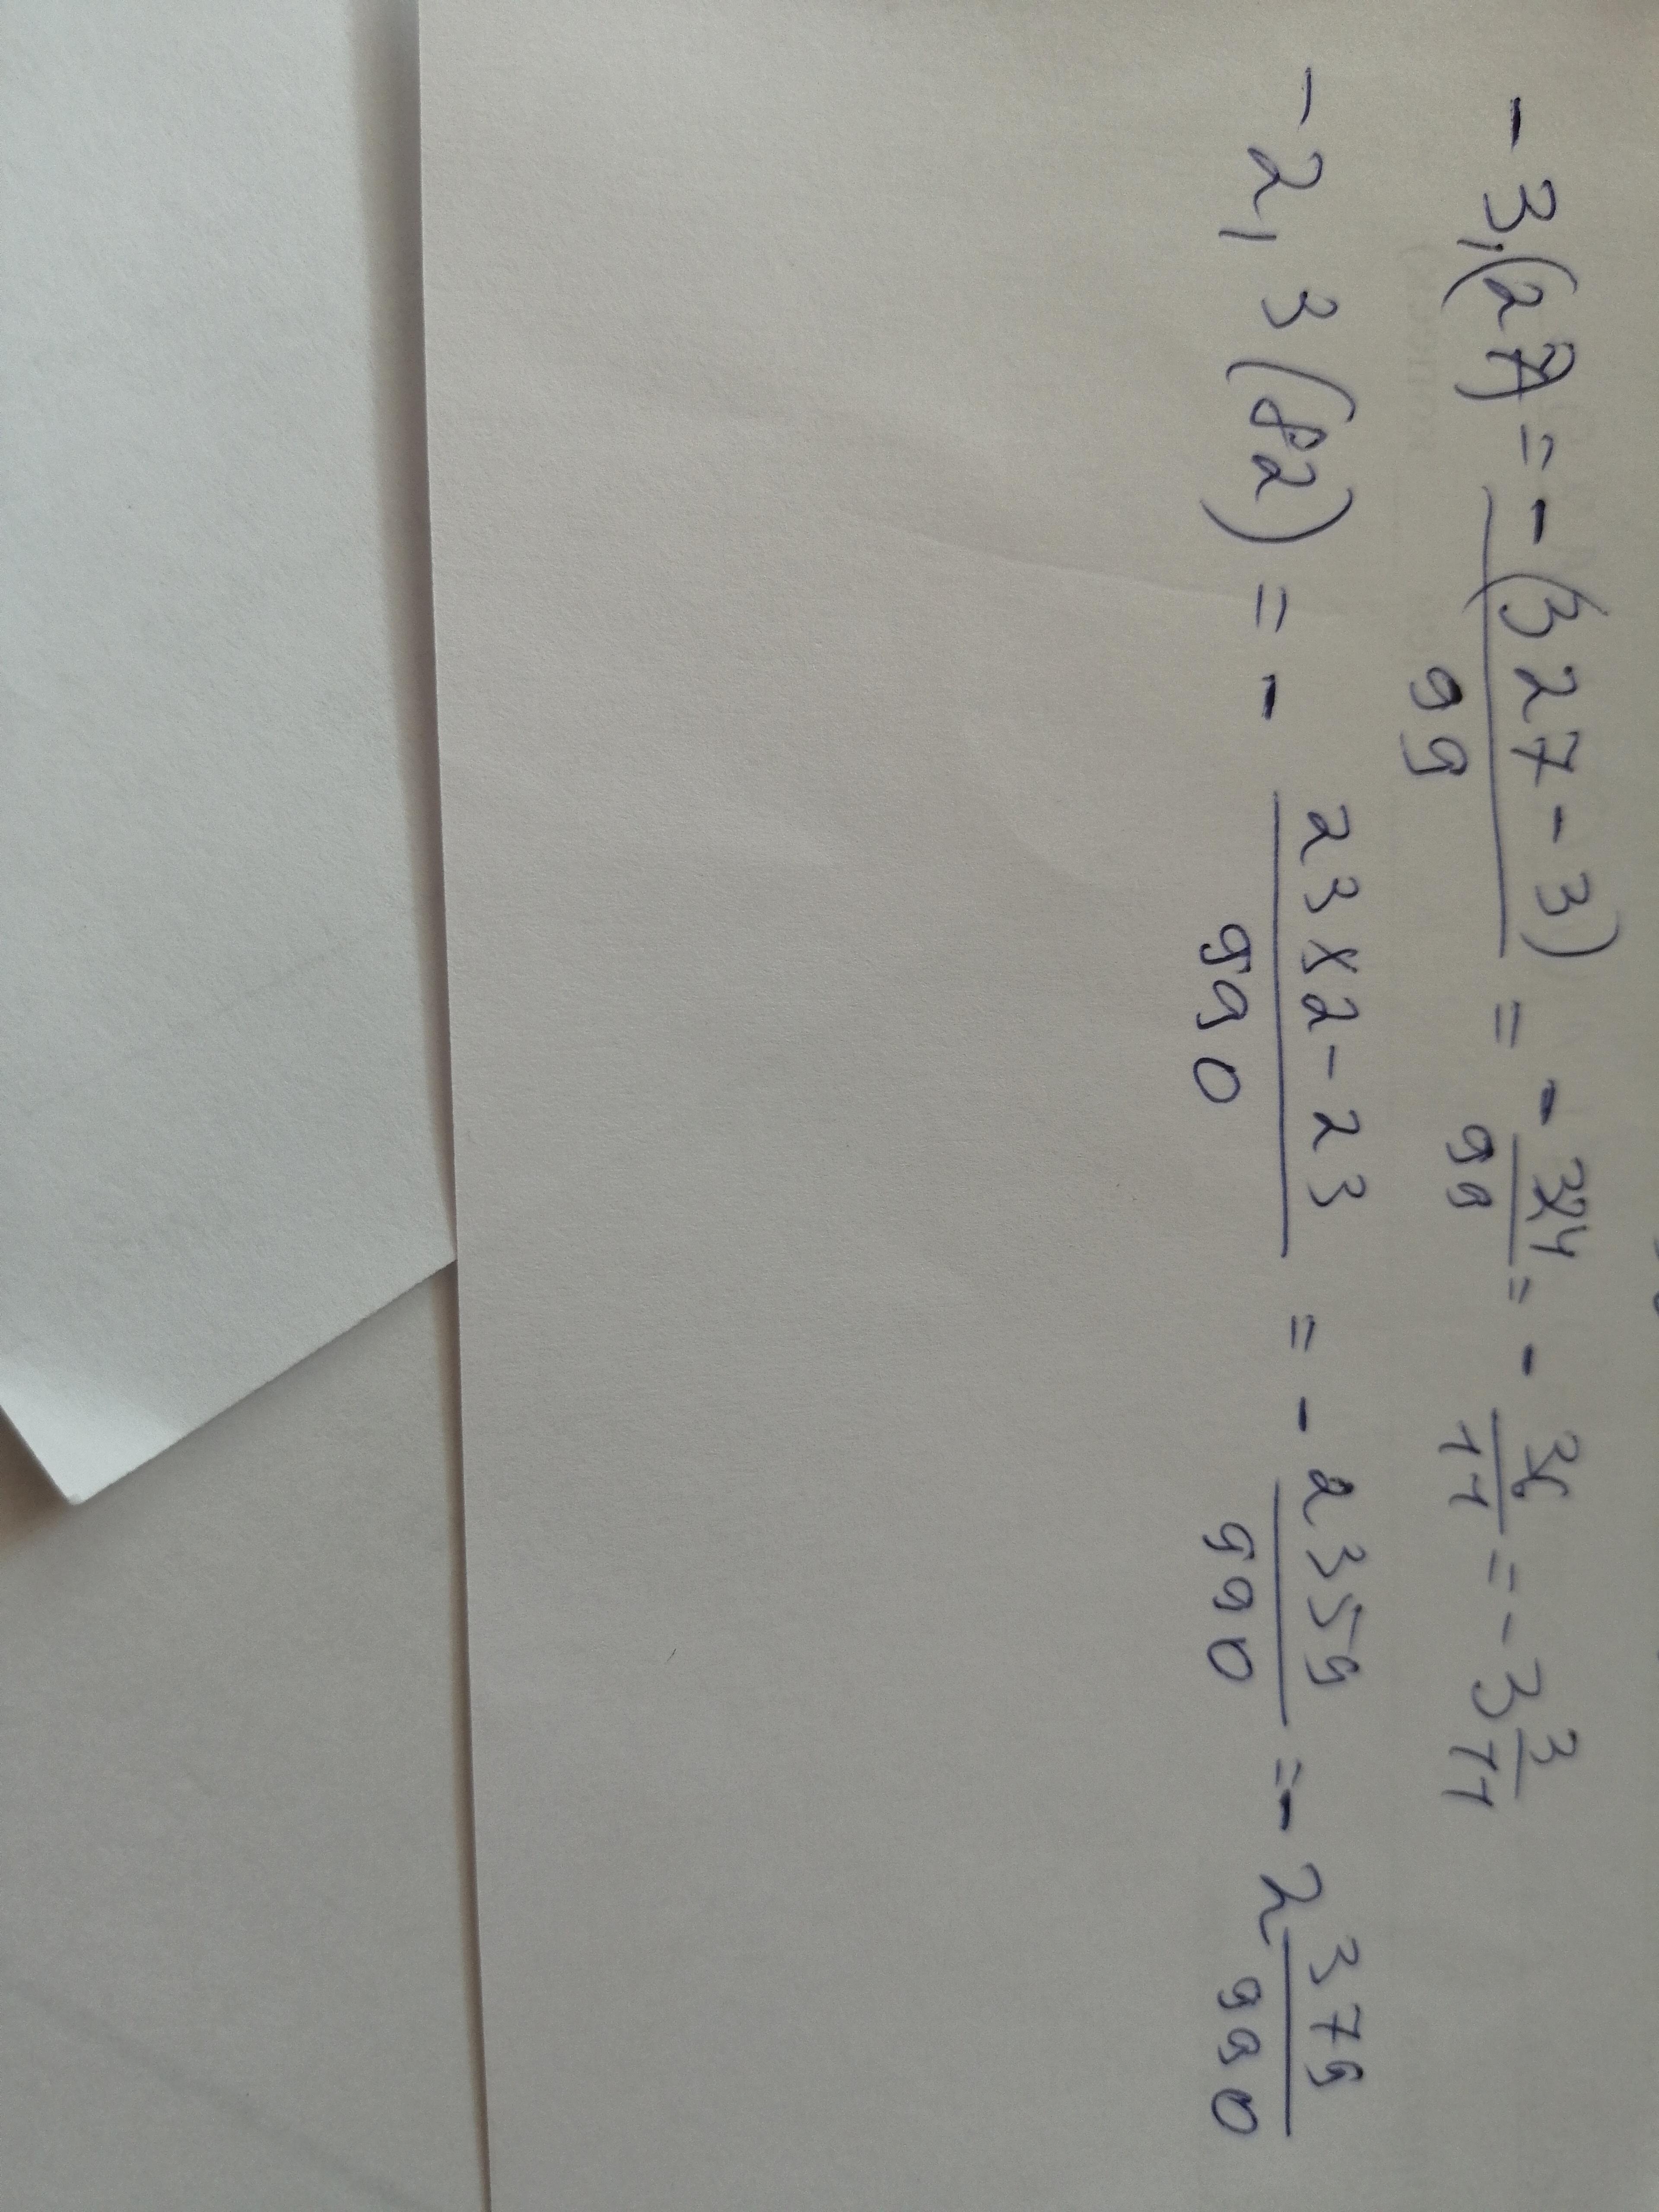 -3,(27) = - (327-3)/99 = - 324/99 = - 36/11 = -3 3/11
-2,3(82) = - 2382-23/990 = - 2359/990 = -2 379/990